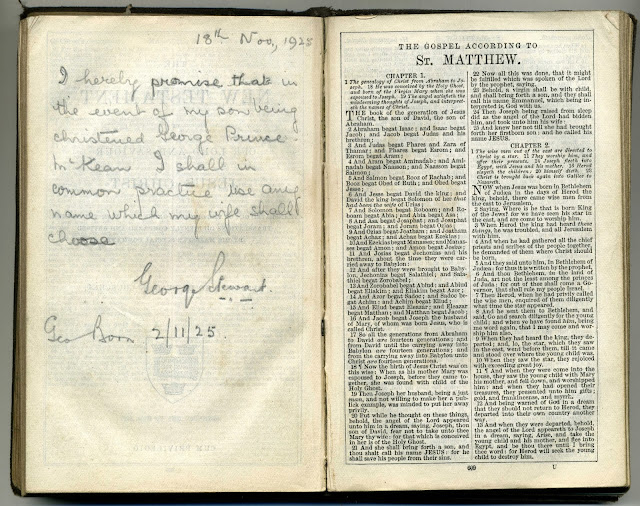 18th Nov, 1925
I hereby promise that in
the event of my son being
christened George Prince
McKean I shall in
common practice use any
name which my wife shall
choose
George Stewart.
Geo Born 2/11/25.
THE GOSPEL ACCORDING TO
ST. MATTHEW.
CHAPTER 1.
1 The genealogy of Christ from Abraham to Jo-
seph. 18 He was conceived by the Holy Ghost,
and born of the Virgin Mary when she was
espoused to Joseph. 19 The angel satisfieth the
misdeeming thoughts of Joseph, and interpret-
eth the names of Christ.
THE book of the generation of Jesus
Christ, the son of David, the son of
Abraham.
2 Abraham begat Isaac; and Isaac begat
Jacob; and Jacob begat Judas and his
brethren;
3 And Judas begat Phares and Zara of
Thamar; and Phares begat Esrom; and
Esrom begat Aram;
4 And Aram begat Aminadab; and Ami-
nadab begat Naasson; and Naasson begat
Salmon;
5 And Salmon begat Booz of Rachab; and
Booz begat Obed of Ruth; and Obed begat
Jesse;
6 And Jesse begat David the king; and
David the king begat Solomon of her that
had been the wife of Urias;
7 And Solomon begat Roboam; and Ro-
boam begat Abia; and Abia begat Asa;
8 And Asa begat Josaphat; and Josaphat
begat Joram; and Joram begat Ozias;
9 And Ozias begat Joatham; and Joatham
begat Achaz; and Achaz begat Ezekias;
10 And Ezekias begat Manasses; and Manas-
ses begat Amon; and Amon begat Josias;
11 And Josias begat Jechonias and his
brethren, about the time they were car-
ried away to Babylon:
12 And after they were brought to Baby-
lon, Jechonias begat Salathiel; and Sala-
thiel begat Zorobabel;
13 And Zorobabel begat Abiud; and Abiud
begat Eliakim; and Eliakim begat Azor;
14 And Azor begat Sadoc; and Sadoc be-
gat Achim; and Achim begat Eliud;
15 And Eliud begat Eleazar; and Eleazar
begat Matthan; and Matthan begat Jacob;
16 And Jacob begat Joseph the husband
of Mary, of whom was born Jesus, who is
called Christ.
17 So all the generations from Abraham
to David are fourteen generations; and
from David until the carrying away into
Babylon are fourteen generations; and
from the carrying away into Babylon unto
Christ are fourteen generations.
18 ¶ Now the birth of Jesus Christ was on
this wise: When as his mother Mary was
espoused to Joseph, before they came to-
gether, she was found with child of the
Holy Ghost.
19 Then Joseph her husband, being a just
man, and not willing to make her a pub-
lick example, was minded to put her away
privily.
20 But while he thought on these things,
behold, the angel of the Lord appeared
unto him in a dream, saying, Joseph, thou
son of David, fear not to take unto thee
Mary thy wife: for that which is conceived
in her is of the Holy Ghost.
21 And she shall bring forth a son, and
thou shalt call his name JESUS: for he
shall save his people from their sins.
22 Now all this was done, that it might
be fulfilled which was spoken of the Lord
by the prophet, saying,
23 Behold, a virgin shall be with child,
and shall bring forth a son, and they shall
call his name Emmanuel, which being in-
terpreted is, God with us.
24 Then Joseph being raised from sleep
did as the angel of the Lord had bidden
him, and took unto him his wife:
25 And knew her not till she had brought
forth her firstborn son: and he called his
name JESUS.
CHAPTER 2.
1 The wise men out of the east are directed to
Christ by a star. 11 They worship him, and
offer their presents. 14 Joseph fleeth into
Egypt, with Jesus and his mother. 16 Herod
slayeth the children: 20 himself dieth. 23
Christ is brought back again into Galilee to
NOW when Jesus was born in Bethlehem
of Judæa in the days of Herod the
king, behold, there came wise men from
the east to Jerusalem,
2 Saying, Where is he that is born King
of the Jews? for we have seen his star in
the east, and are come to worship him.
3 When Herod the king had heard these
things, he was troubled, and all Jerusalem
with him.
4 And when he had gathered all the chief
priests and scribes of the people together,
he demanded of them where Christ should
be born.
5 And they said unto him, In Bethlehem of
Judæa: for thus it is written by the prophet,
6 And thou Bethlehem, in the land of
Juda, art not the least among the princes
of Juda: for out of thee shall come a Go-
vernor, that shall rule my people Israel.
7 Then Herod, when he had privily called
the wise men, enquired of them diligently
what time the star appeared.
8 And he sent them to Bethlehem, and
said, Go and search diligently for the young
child; and when ye have found him, bring
me word again, that I may come and wor-
ship him also.
9 When they had heard the king, they de-
parted; and, lo, the star, which they saw
in the east, went before them, till it came
and stood over where the young child was.
10 When they saw the star, they rejoiced
with exceeding great joy.
11 ¶ And when they were come into the
house, they saw the young child with Mary
his mother, and fell down, and worshipped
him: and when they had opened their
treasures, they presented unto him gifts;
gold, and frankincense, and myrrh.
12 And being warned of God in a dream
that they should not return to Herod, they
departed into their own country another
way.
13 And when they were departed, behold,
the angel of the Lord appeareth to Joseph
in a dream, saying, Arise, and take the
young child and his mother, and flee into
Egypt, and be thou there until I bring
thee word: for Herod will seek the young
child to destroy him.
609 U